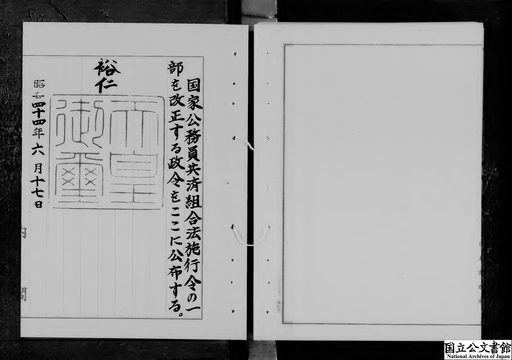 国家公務員共済組合法施行令の一
部を改正する政令をここに公布する。
裕仁
天皇
御璽
昭和四十四年六月十七日
内閣
国立公文書館
National Archives of Japan